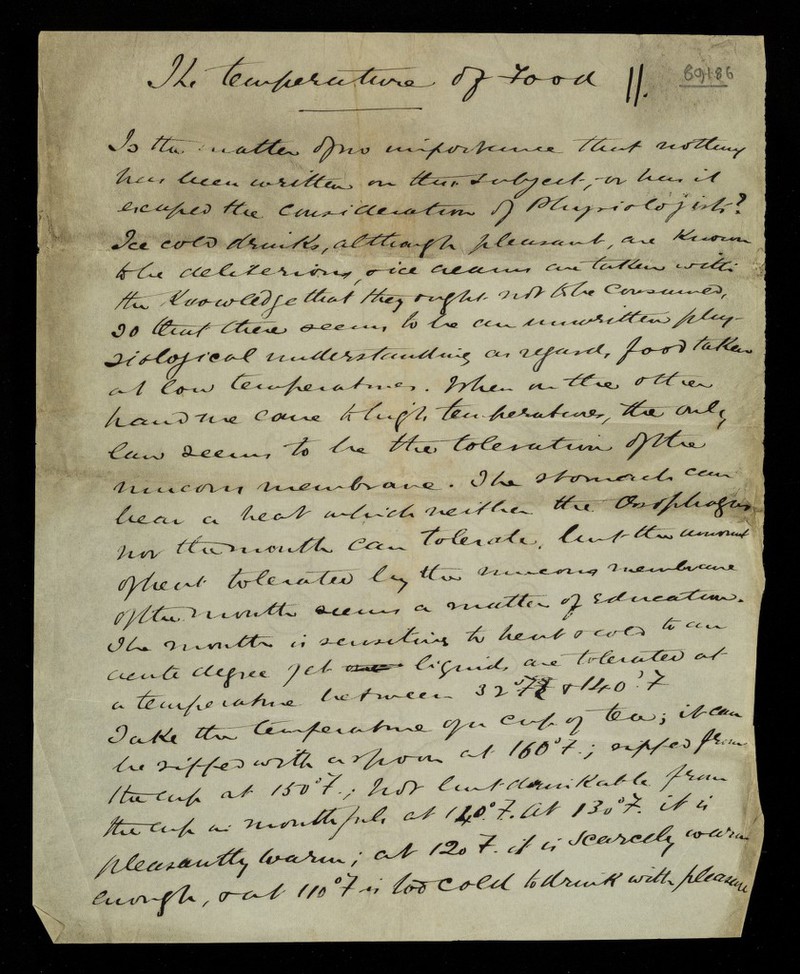 The temperature of Food 11. 69186
Is the matter of no importance that nothing
has been written on this subject, or has it
escaped the consideration of Physiologists?
Ice cold drinks, although pleasant, are known
to be deleterious, & ice creams are taken with
the knowledge that they ought not to be consumed,
so that there seems to be an unwritten phy-
siological understanding as regards food taken
at low temperatures. When on the other
hand we come to high temperatures, the only
law seems to be the toleration of the
mucous membrane. The stomach can
bear a heat which neither the Oesophagus
nor the mouth can tolerate, but the amount
of heat tolerated by the mucous membrane
of the mouth seems a matter of education.
The mouth is sensitive to heat & cold to an
acute degree yet liquids are tolerated at
a temperature between 32°F & 140°F
Take the temperature of a cup of tea; it can
be sipped with a spoon at 160°F.; sipped from
the cup at 150°F.; hot but drinkable from
the cup in mouthfuls at 140°F. At 130°F. it is
pleasantly warm; at 120 F. it is scarcely warm
enough, & at 110°F is too cold to drink with pleasure